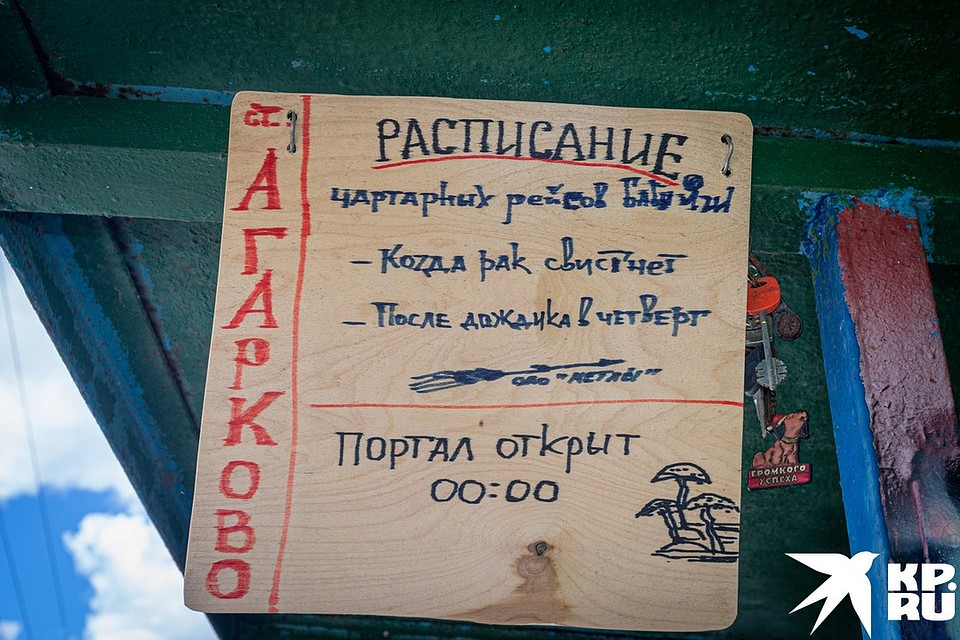 ст.
АГАРКОВО
РАСПИСАНИЕ
цартарных рейсов
– Когда рак свистнет
– После дождика в четверг
ОАО "МЕТЛЫ"
Портал открыт
00:00
ГРОМКОГО
УСПЕХА
KP.
RU